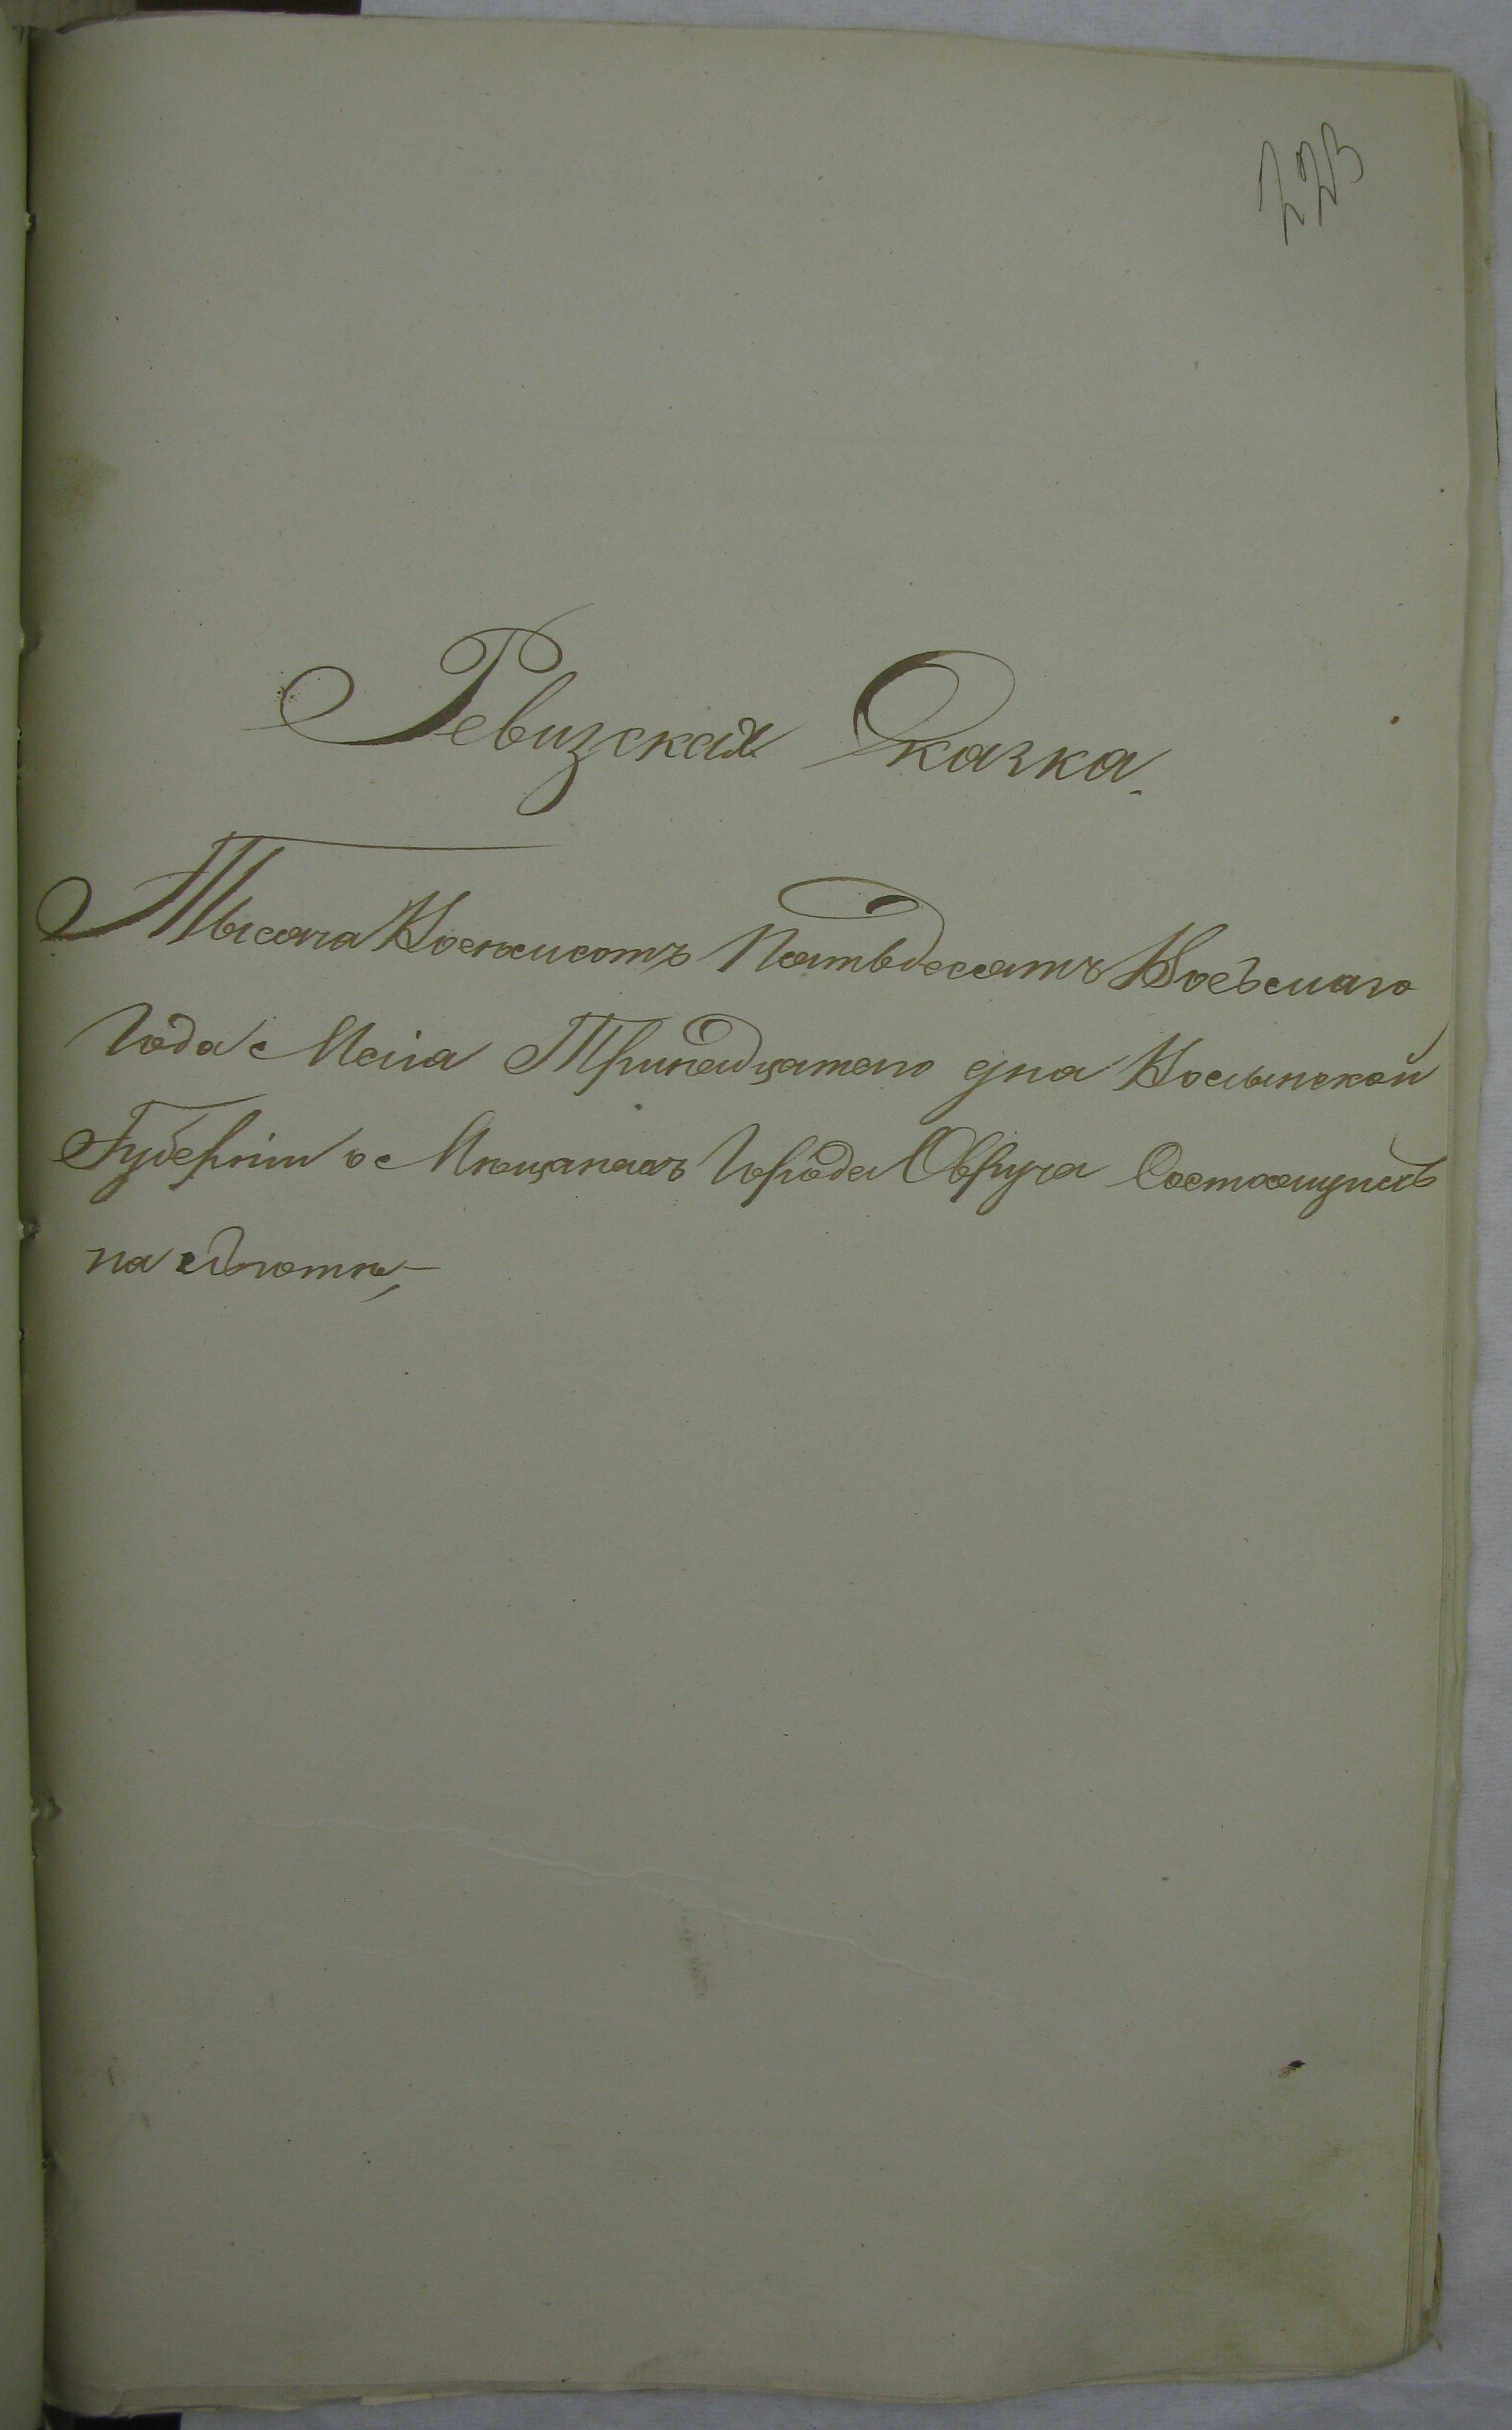 223
Ревизская Сказка.
Тысяча Восемьсотъ Пятьдесятъ Восьмаго
Года Маія Тринадцатаго дня Волынской
Губерніи о Мѣщанахъ Города Овруча Состоящихъ
на льготѣ,—